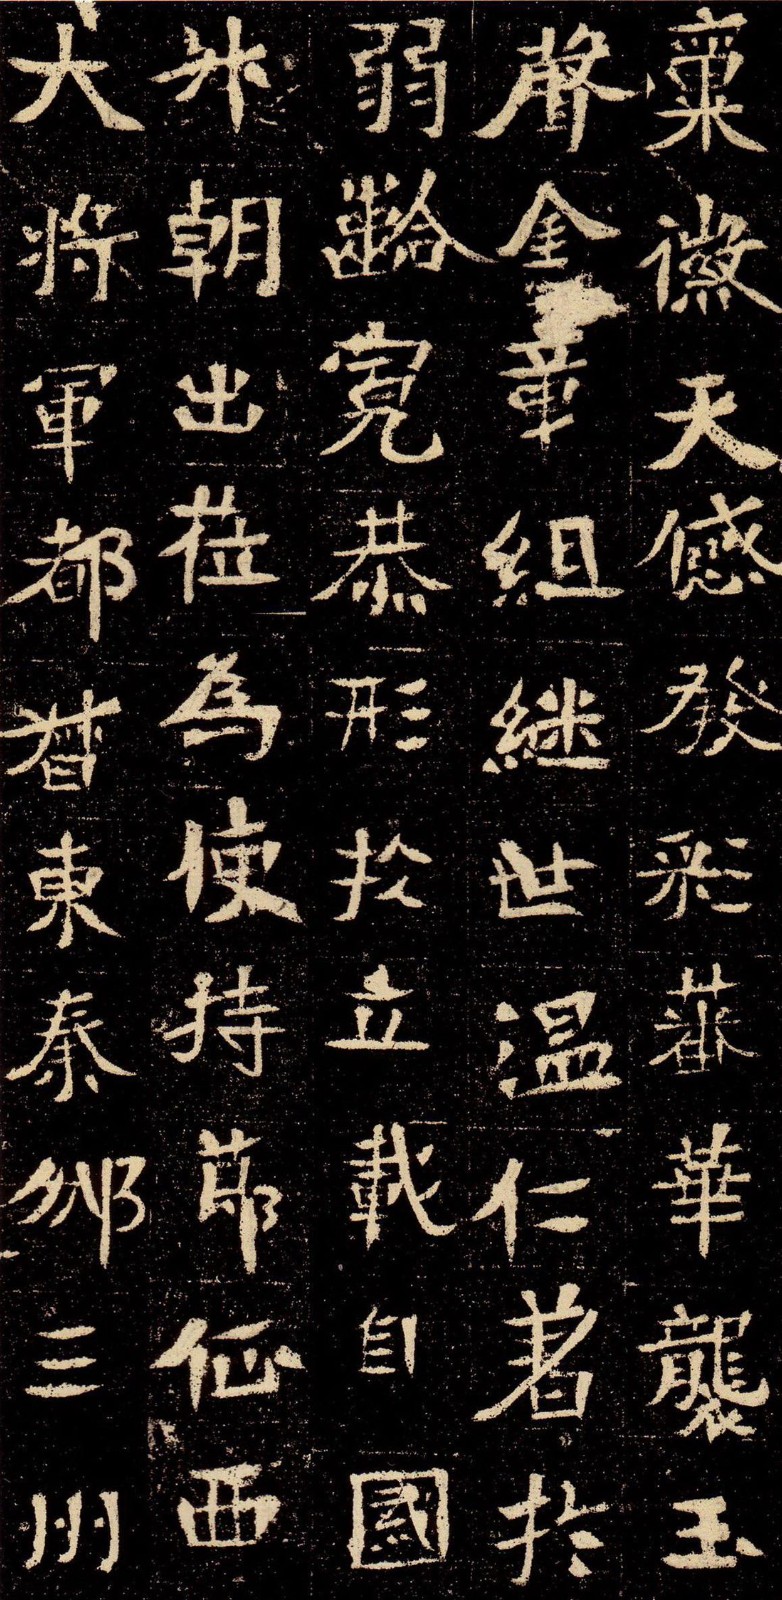 稟徽天感發彩蕃華襲玉
聲金章組繼世溫仁著於
弱齡寬恭形於立載自國
升朝出莅為使持節征西
大將軍都督東秦邠三州